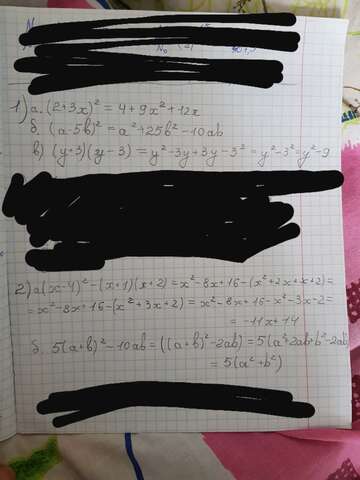 1) а. (2+3x)² = 4+9x²+12x
б. (a-5b)² = a²+25b²-10ab
в) (y+3)(y-3) = y²-3y+3y-3² = y²-3² = y²-9
2) а (x-4)²-(x+1)(x+2) = x²-8x+16-(x²+2x+x+2) =
= x²-8x+16-(x²+3x+2) = x²-8x+16-x²-3x-2 =
= -11x+14
б. 5(a+b)²-10ab = ((a+b)²-2ab) = 5(a²+2ab+b²-2ab)
= 5(a²+b²)